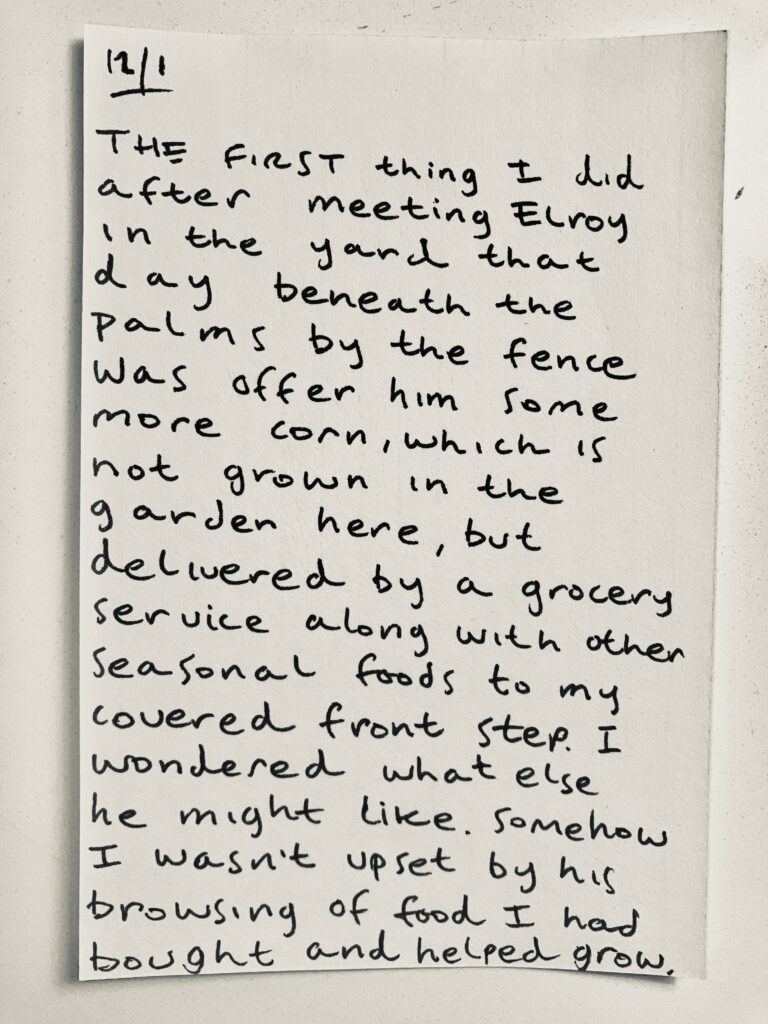 12/1
THE FIRST thing I did
after meeting Elroy
in the yard that
day beneath the
palms by the fence
was offer him some
more corn, which is
not grown in the
garden here, but
delivered by a grocery
service along with other
seasonal foods to my
covered front step. I
wondered what else
he might like. Somehow
I wasn't upset by his
browsing of food I had
bought and helped grow.